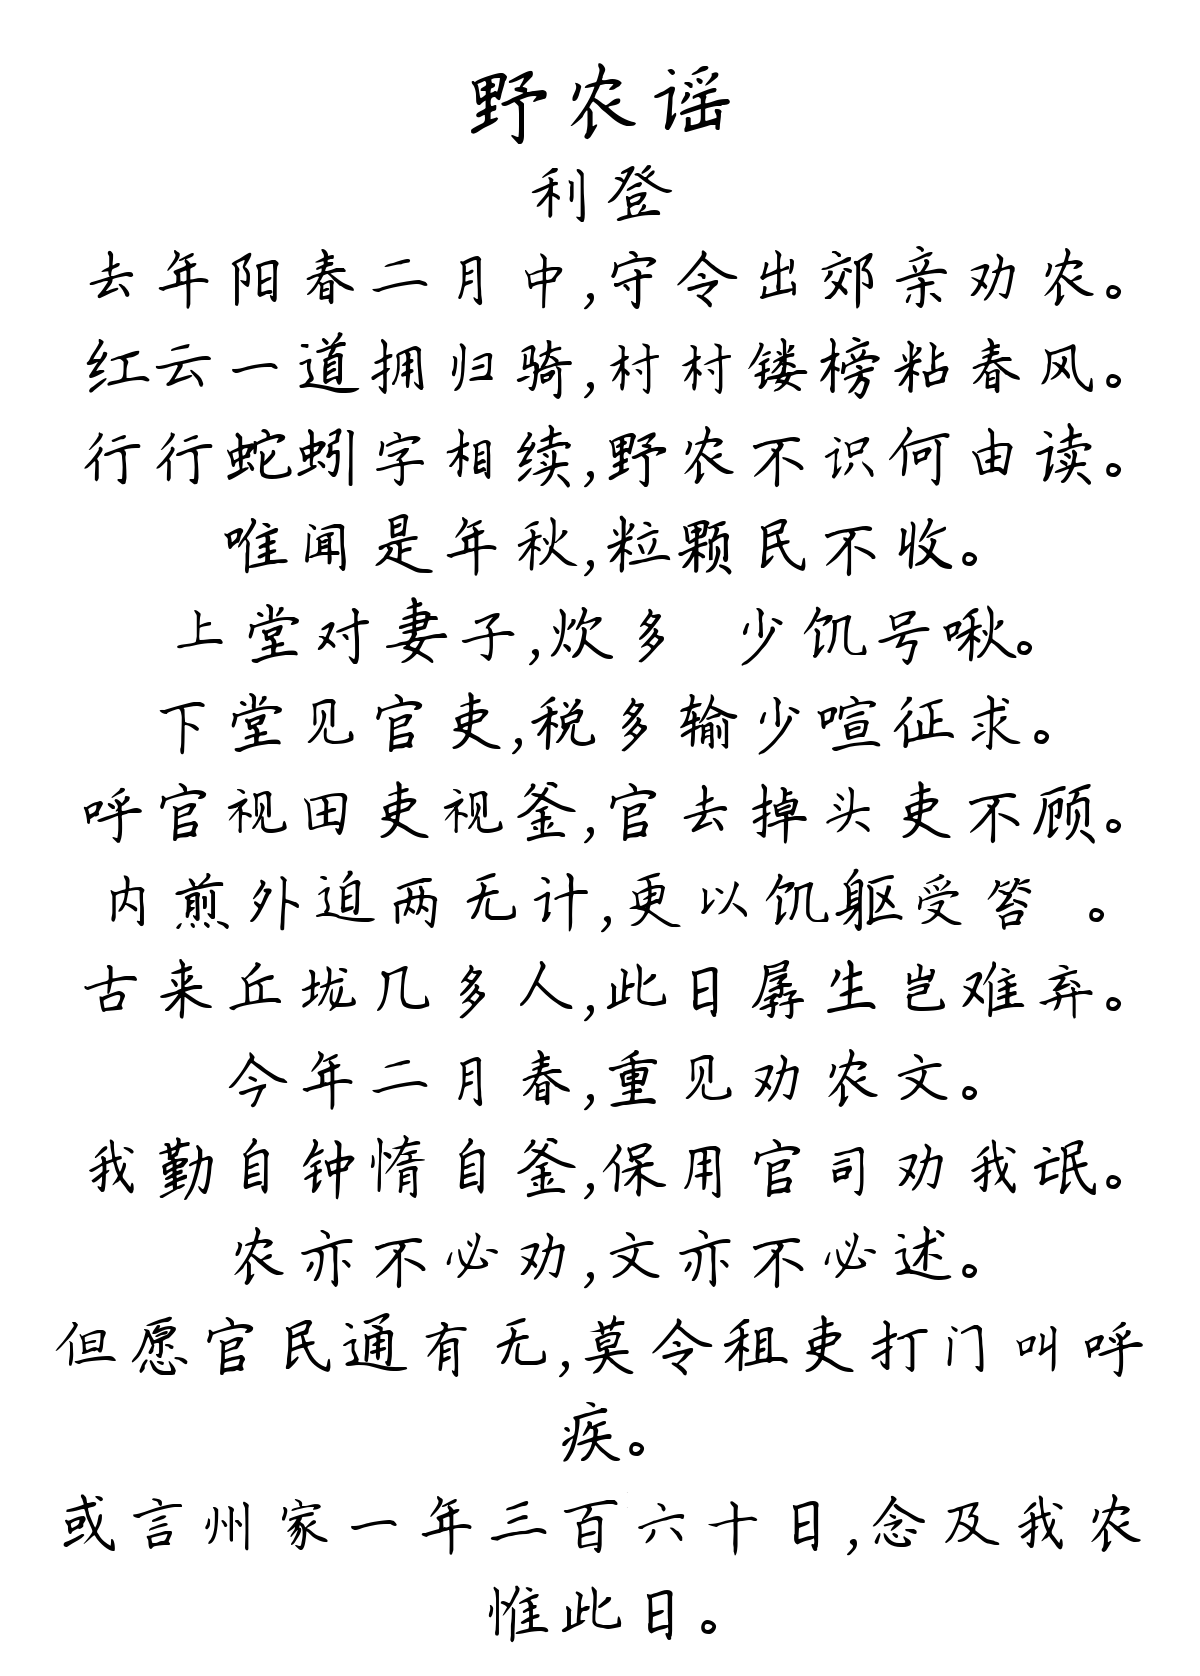 野农谣
利登
去年阳春二月中,守令出郊亲劝农。
红云一道拥归骑,村村镂榜粘春风。
行行蛇蚓字相续,野农不识何由读。
唯闻是年秋,粒颗民不收。
上堂对妻子,炊多 少饥号啾。
下堂见官吏,税多输少喧征求。
呼官视田吏视釜,官去掉头吏不顾。
内煎外迫两无计,更以饥躯受笞 。
古来丘垅几多人,此日孱生岂难弃。
今年二月春,重见劝农文。
我勤自钟惰自釜,保用官司劝我氓。
农亦不必劝,文亦不必述。
但愿官民通有无,莫令租吏打门叫呼
疾。
或言州家一年三百六十日,念及我农
惟此日。